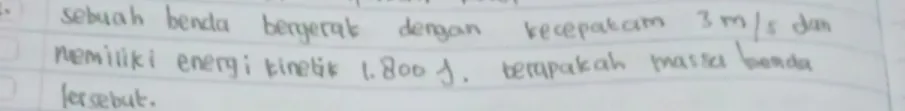 sebuah benda bergerak dengan kecepatan 3 m/s dan
memiliki energi kinetik 1.800 J. berapakah massa benda
tersebut.